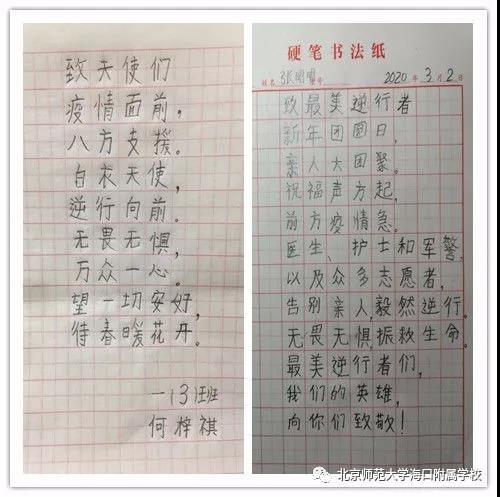 致天使们
疫情面前，
八方支援。
白衣天使，
逆行向前。
无畏无惧，
万众一心。
望一切安好，
待春暖花开。
何梓祺
硬笔书法纸
姓名 张 2020年3月2
致最美逆行者
新年团圆日，
亲人大团聚。
祝福声方起，
前方疫情急。
医生、护士和军警，
以及众多志愿者，
告别亲人，毅然逆行。
无畏无惧，振救生命。
最美逆行者们，
我们的英雄，
向你们致敬！
北京师范大学海口附属学校